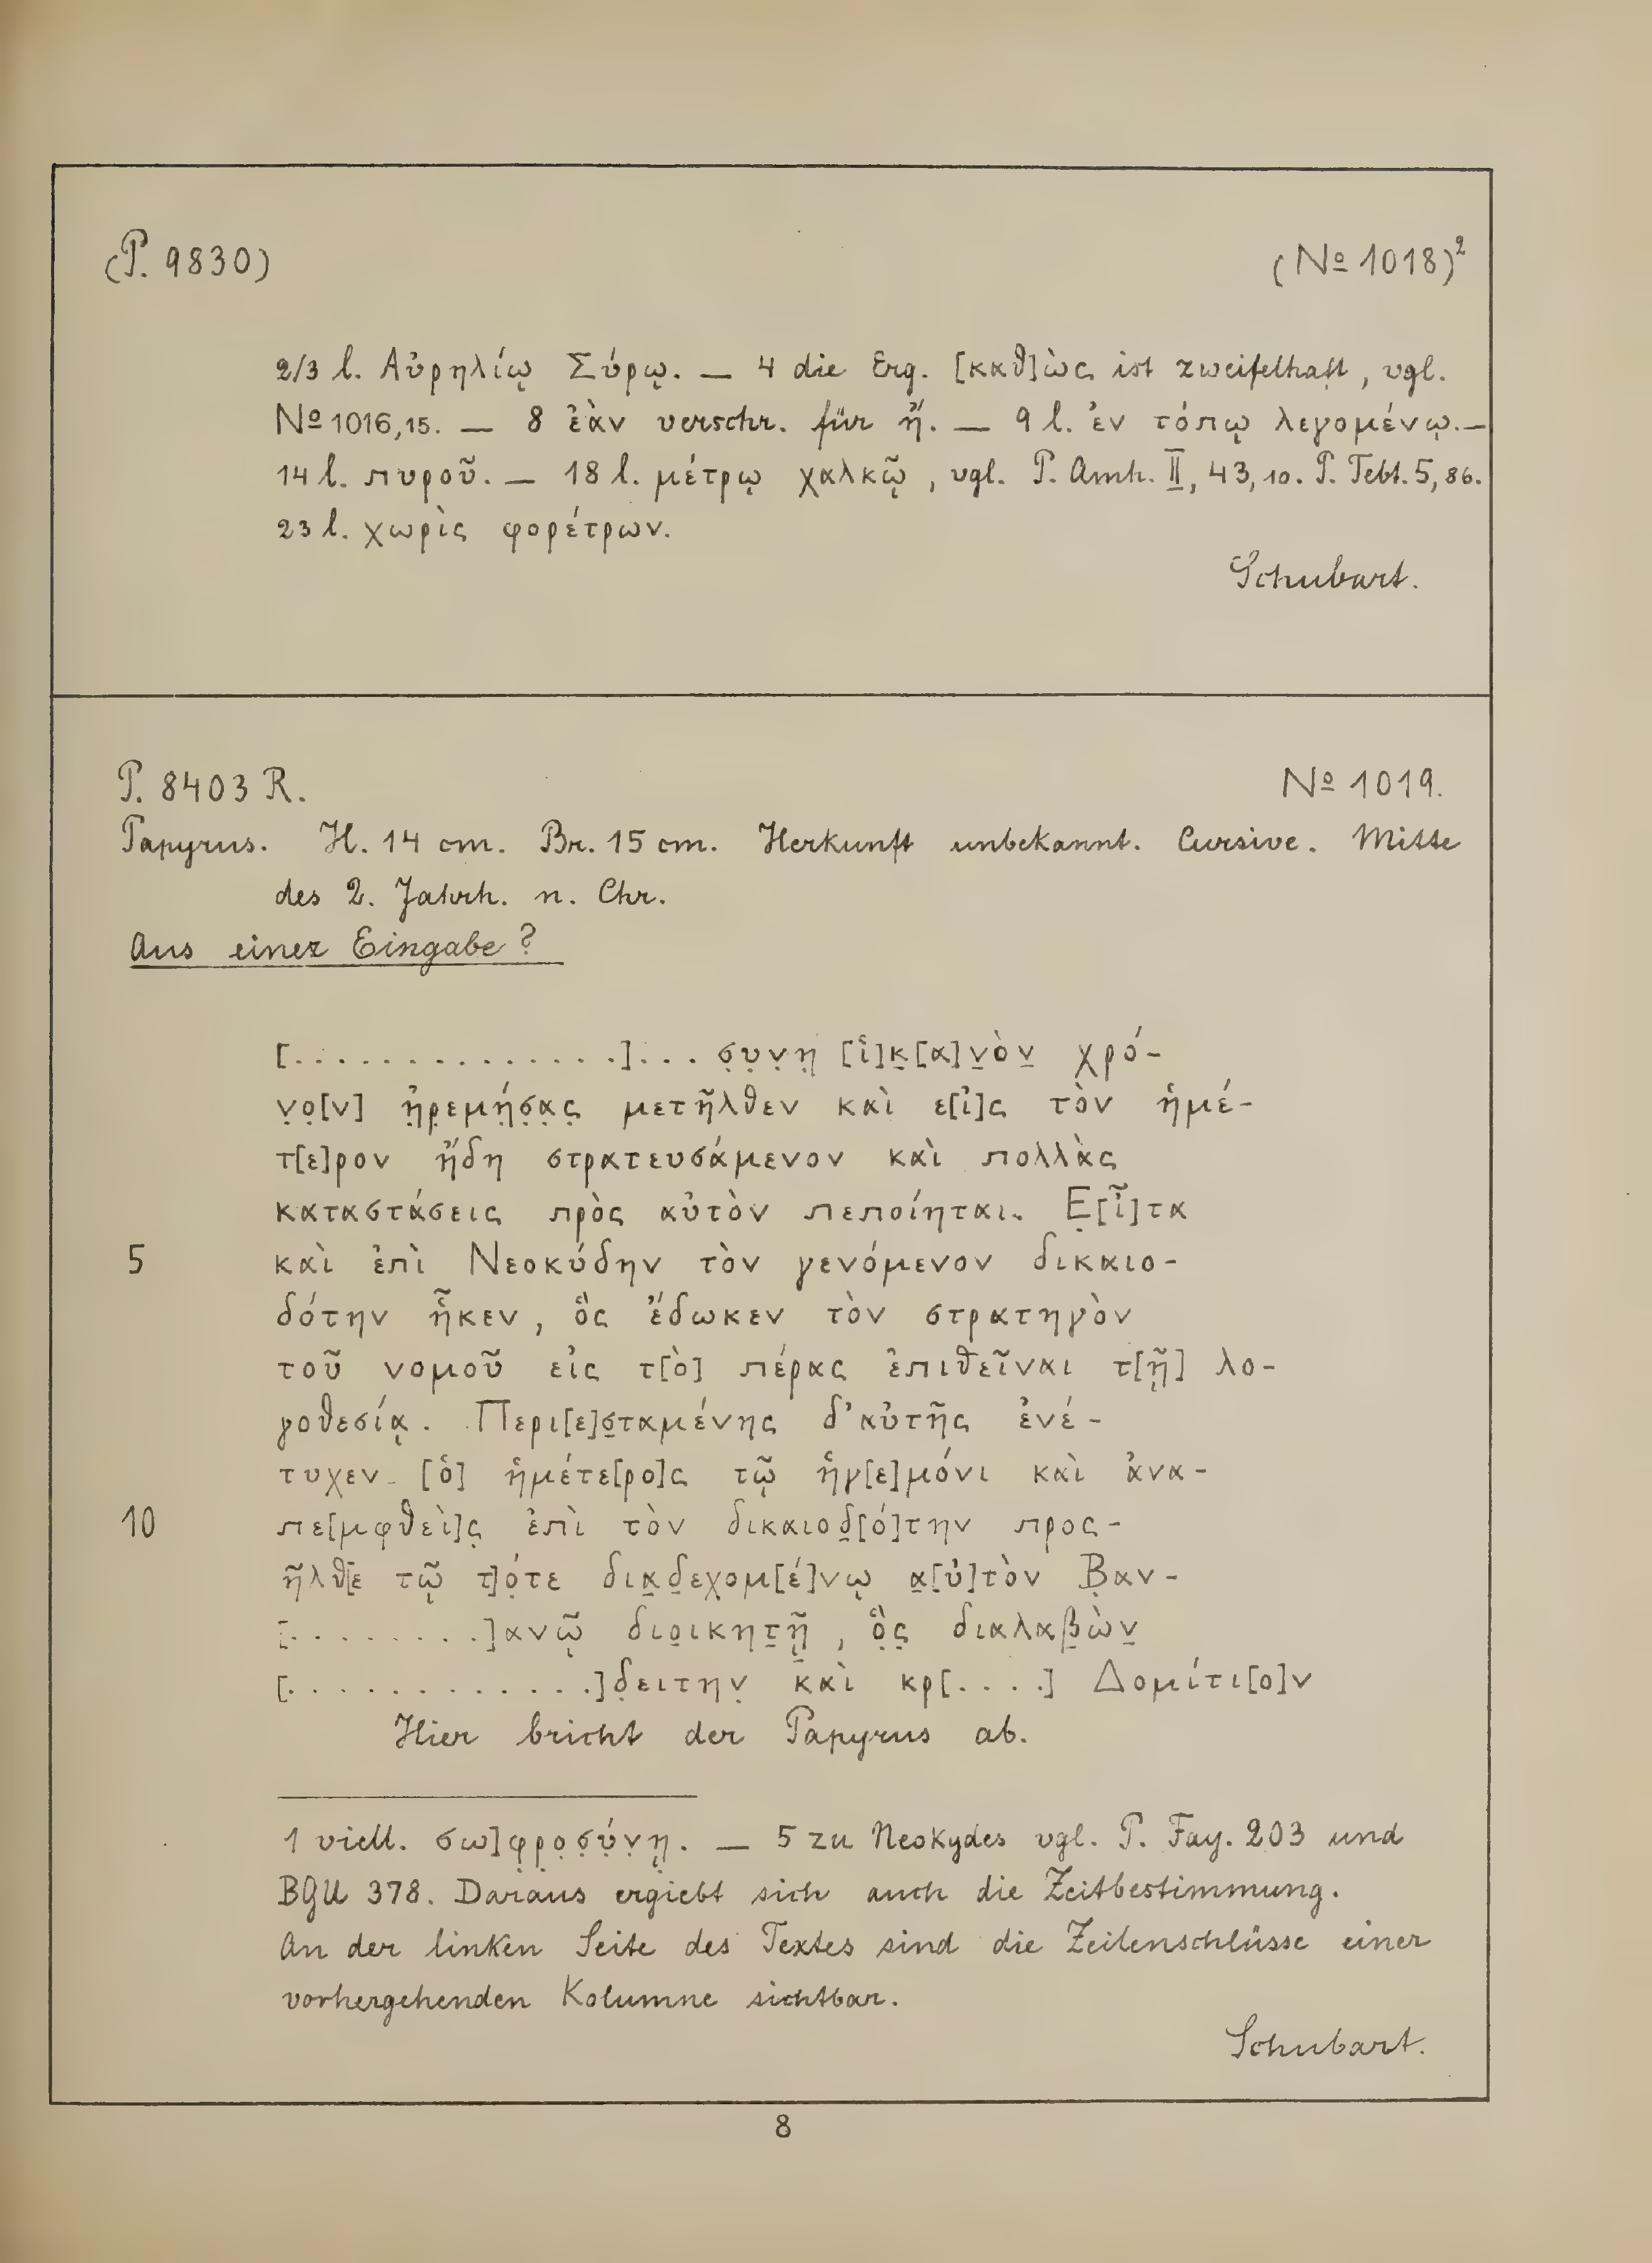 (P. 9830)
(№ 1018)²
2/3 l. Αὐρηλίῳ Σύρῳ. — 4 die Erg. [καθ]ὼς ist zweifelhaft, vgl.
№ 1016,15. — 8 ἐὰν verschr. für ἤ. — 9 l. ἐν τόπῳ λεγομένῳ.—
14 l. πυροῦ. — 18 l. μέτρῳ χαλκῷ, vgl. P. Amh. II, 43, 10. P. Tebt. 5, 86.
23 l. χωρὶς φορέτρων.
Schubart.
P. 8403 R.
№ 1019.
Papyrus. H. 14 cm. Br. 15 cm. Herkunft unbekannt. Cursive. Mitte
des 2. Jahrh. n. Chr.
Aus einer Eingabe?
[. . . . . . . . . . . . . . .]. . . σ̣υ̣ν̣ῃ̣ [ἱ]κ̣[α]ν̣ὸν̣ χρό-
ν̣ο̣[ν] ἠ̣ρ̣εμή̣σ̣α̣ς̣ μετῆλθεν καὶ ε[ἰ]ς τὸν ἡμέ-
τ[ε]ρον ἤδη στρατευσάμενον καὶ πολλὰς
καταστάσεις πρὸς αὐτὸν πεποίηται. Ε̣[ἶ]τα
5 καὶ ἐπὶ Νεοκύδην τὸν γενόμενον δικαιο-
δότην ἧκεν, ὃς ἔδωκεν τὸν στρατηγὸν
τοῦ νομοῦ εἰς τ[ὸ] πέρας ἐπιθεῖναι τ[ῇ] λο-
γοθεσίᾳ. Περι[ε]σ̣ταμένης δ’ αὐτῆς ἐνέ-
τυχεν [ὁ] ἡμέτε[ρο]ς τῷ ἡγ[ε]μόνι καὶ ἀνα-
10 πε[μφθεὶ]ς̣ ἐπὶ τὸν δικαιοδ̣[ό]την προς-
ῆλθ[ε τῷ τ]ό̣τε δια̣δ̣εχομ[έ]νῳ α̣[ὐ]τὸν Β̣αν-
[. . . . . . . . .]ανῷ διο̣ικητ̣ῇ̣, ὃ̣ς̣ διαλαβ̣ὼν̣
[. . . . . . . . . . . . . .]δ̣ειτην̣ καὶ κρ[. . . .] Δομίτι[ο]ν
Hier bricht der Papyrus ab.
1 viell. σω]φ̣ρ̣ο̣σ̣ύ̣ν̣ῃ̣. — 5 zu Neokydes vgl. P. Fay. 203 und
BGU 378. Daraus ergiebt sich auch die Zeitbestimmung.
An der linken Seite des Textes sind die Zeilenschlüsse einer
vorhergehenden Kolumne sichtbar.
Schubart.
8